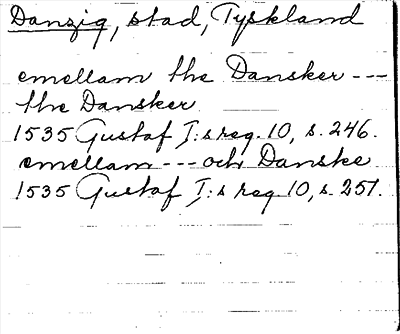 Danzig, stad, Tyskland
emellam the Dansker ---
the Dansker
1535 Gustaf I:s reg. 10, s. 246.
emellam --- och Danske
1535 Gustaf I:s reg 10, s. 251.